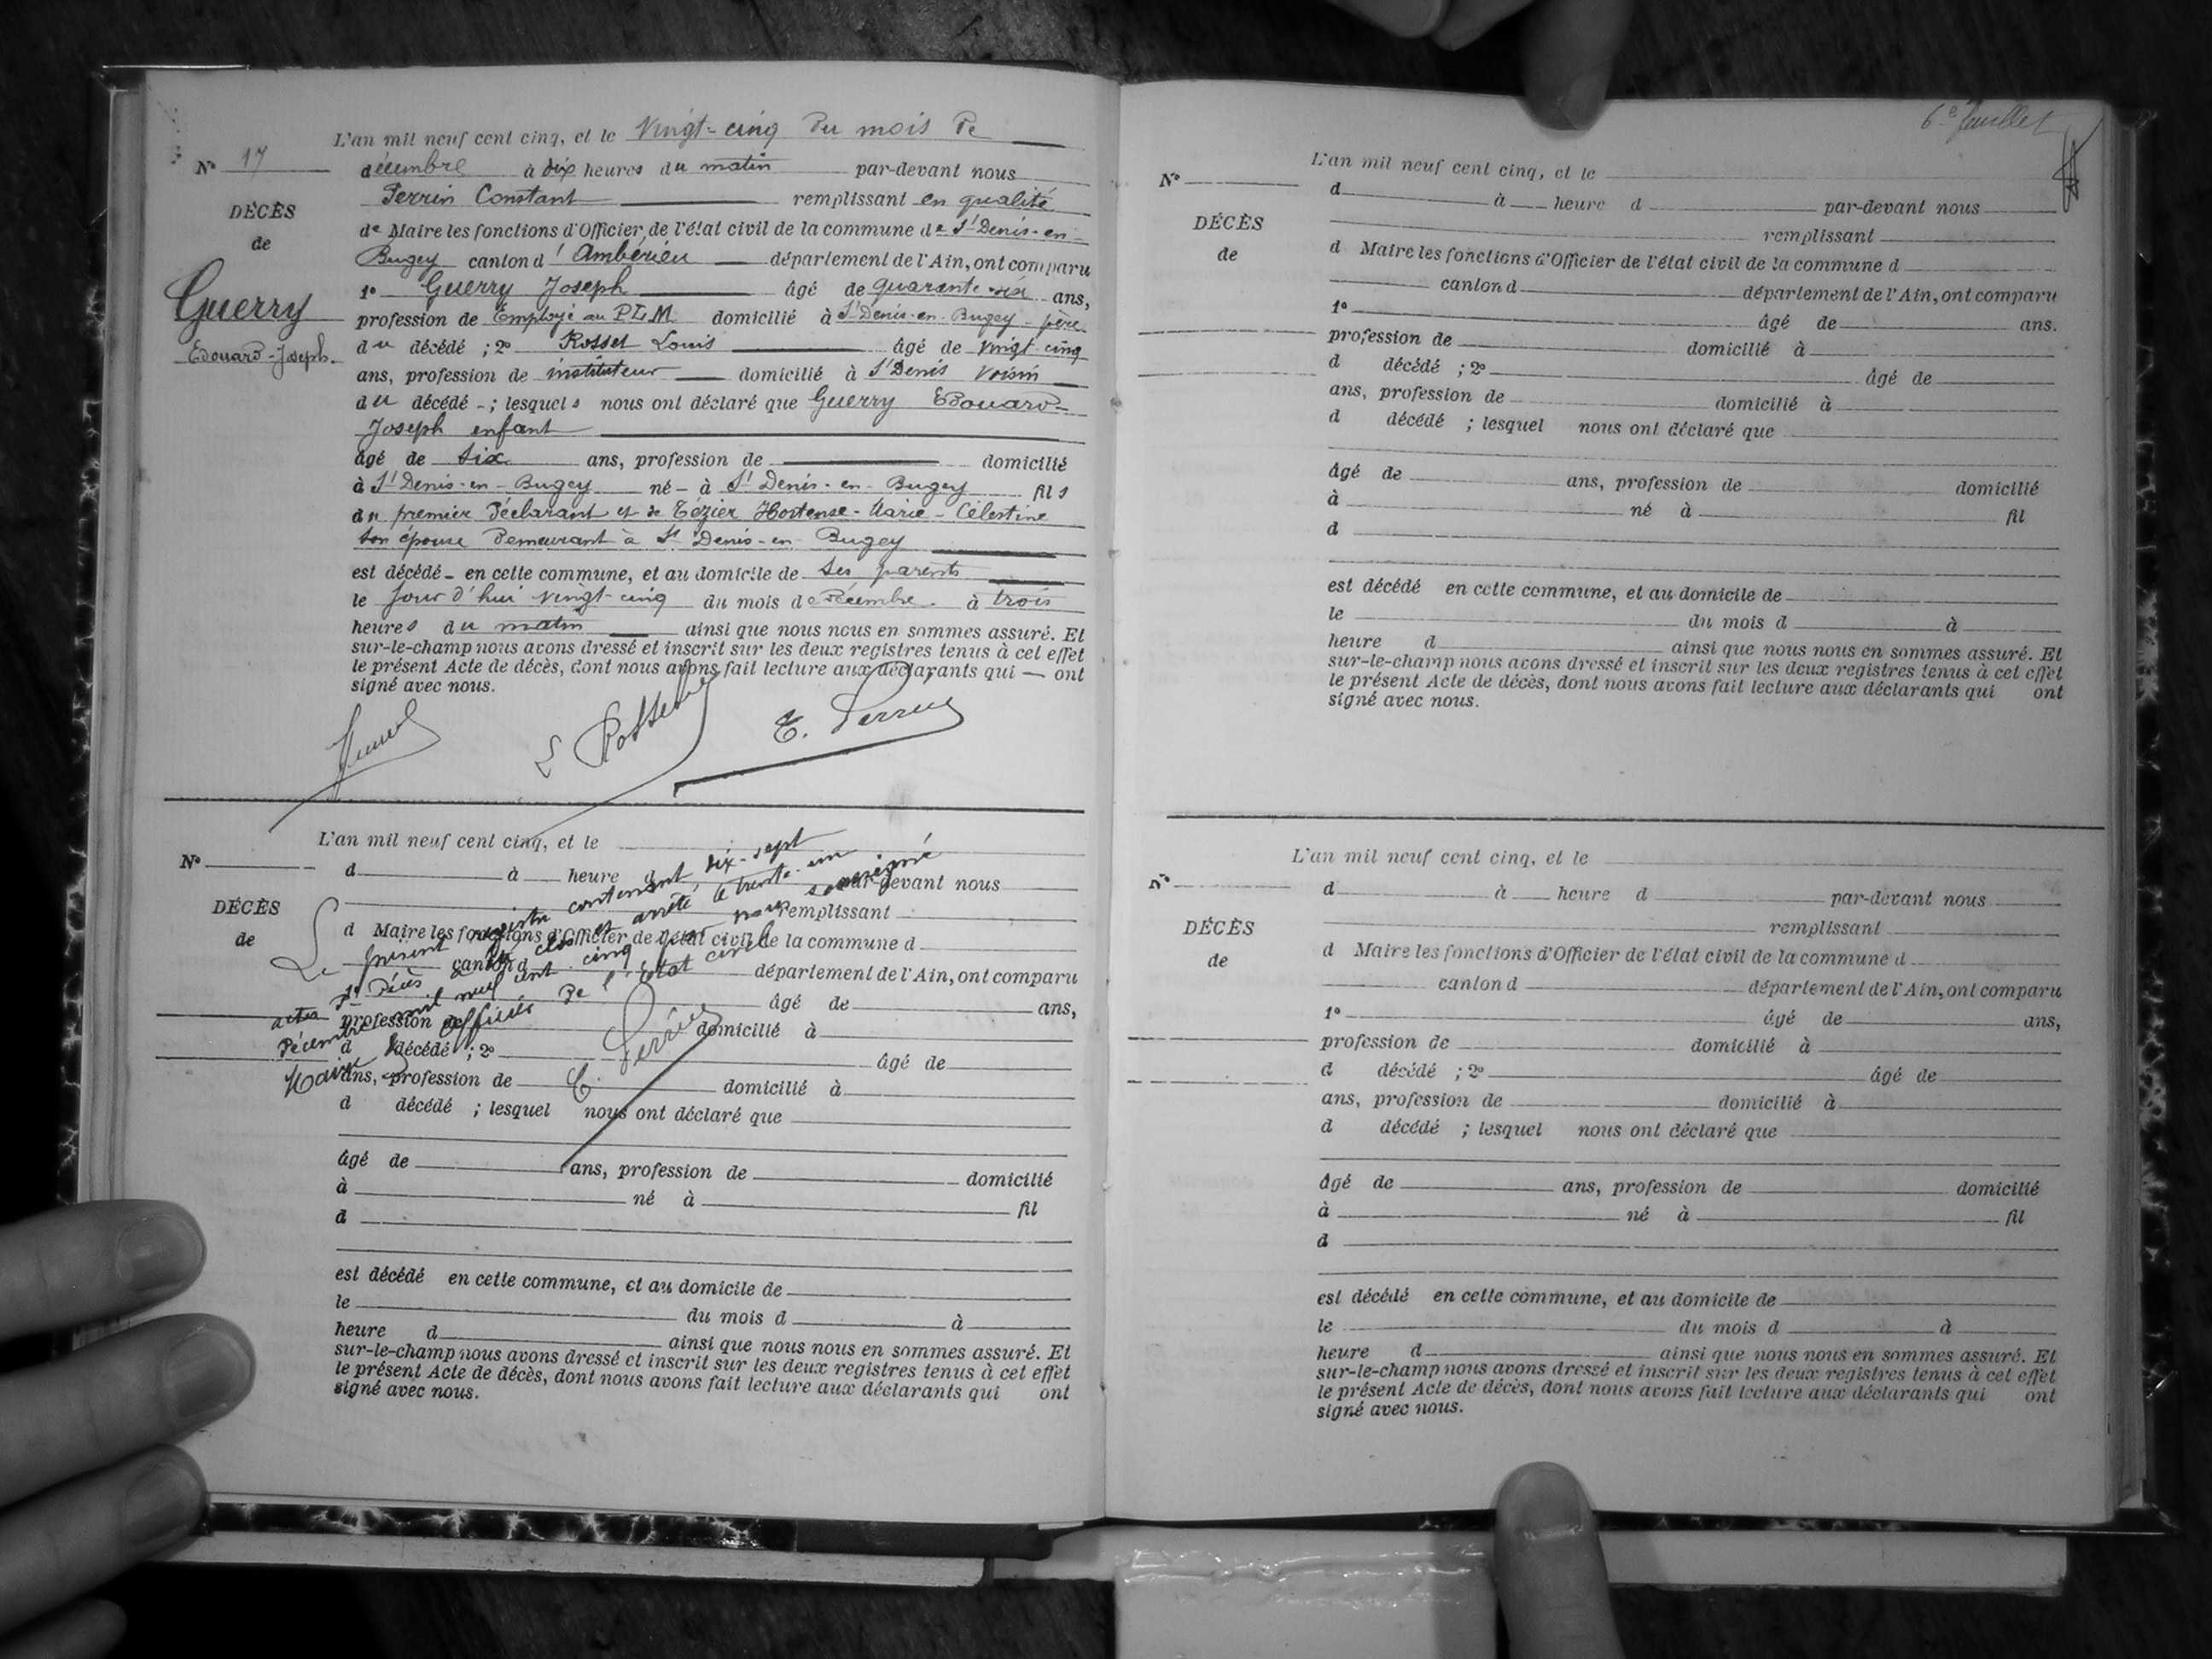 L'an mil neuf cent cinq, et le vingt-cinq du mois de
N° 17
décembre à dix heures du matin par-devant nous
Perrin Constant remplissant en qualité
DÉCÈS
de Maire les fonctions d'Officier de l'état civil de la commune de St Denis-en-
de
Bugey canton d'Ambérieu département de l'Ain, ont comparu
Guerry
Edouard-Joseph.
1° Guerry Joseph âgé de quarante-six ans,
profession de Employé au P.L.M domicilié à St Denis-en-Bugey père
du décédé ; 2° Rosset Louis âgé de vingt cinq
ans, profession de instituteur domicilié à St Denis voisin
du décédé - ; lesquels nous ont déclaré que Guerry Edouard-
Joseph enfant
âgé de six ans, profession de domicilié
à St Denis-en-Bugey né - à St Denis-en-Bugey fils
du premier déclarant et de Tézier Hortense-Marie-Célestine
son épouse demeurant à St Denis-en-Bugey
est décédé - en cette commune, et au domicile de ses parents
le jour d'hui vingt-cinq du mois de décembre à trois
heures du matin ainsi que nous nous en sommes assuré. Et
sur-le-champ nous avons dressé et inscrit sur les deux registres tenus à cet effet
le présent Acte de décès, dont nous avons fait lecture aux déclarants qui — ont
signé avec nous.
L Rosset C. Perrin
L'an mil neuf cent cinq, et le
N°
d à heure d par-devant nous
remplissant
DÉCÈS
de
d Maire les fonctions d'Officier de l'état civil de la commune d
canton d département de l'Ain, ont comparu
1° âgé de ans,
profession de domicilié à
d décédé ; 2° âgé de
ans, profession de domicilié à
d décédé ; lesquel nous ont déclaré que
âgé de ans, profession de domicilié
à né à fil
d
est décédé en cette commune, et au domicile de
le du mois d à
heure d ainsi que nous nous en sommes assuré. Et
sur-le-champ nous avons dressé et inscrit sur les deux registres tenus à cet effet
le présent Acte de décès, dont nous avons fait lecture aux déclarants qui ont
signé avec nous.
Le présent registre contenant dix-sept
actes de Décès a été clos et arrêté le trente-un
Décembre mil neuf cent cinq par nous soussigné
Maire officier de l'état civil
C. Perrin
6e feuillet
L'an mil neuf cent cinq, et le
N°
d à heure d par-devant nous
remplissant
DÉCÈS
de
d Maire les fonctions d'Officier de l'état civil de la commune d
canton d département de l'Ain, ont comparu
1° âgé de ans.
profession de domicilié à
d décédé ; 2° âgé de
ans, profession de domicilié à
d décédé ; lesquel nous ont déclaré que
âgé de ans, profession de domicilié
à né à fil
d
est décédé en cette commune, et au domicile de
le du mois d à
heure d ainsi que nous nous en sommes assuré. Et
sur-le-champ nous avons dressé et inscrit sur les deux registres tenus à cet effet
le présent Acte de décès, dont nous avons fait lecture aux déclarants qui ont
signé avec nous.
L'an mil neuf cent cinq, et le
N°
d à heure d par-devant nous
remplissant
DÉCÈS
de
d Maire les fonctions d'Officier de l'état civil de la commune d
canton d département de l'Ain, ont comparu
1° âgé de ans,
profession de domicilié à
d décédé ; 2° âgé de
ans, profession de domicilié à
d décédé ; lesquel nous ont déclaré que
âgé de ans, profession de domicilié
à né à fil
d
est décédé en cette commune, et au domicile de
le du mois d à
heure d ainsi que nous nous en sommes assuré. Et
sur-le-champ nous avons dressé et inscrit sur les deux registres tenus à cet effet
le présent Acte de décès, dont nous avons fait lecture aux déclarants qui ont
signé avec nous.